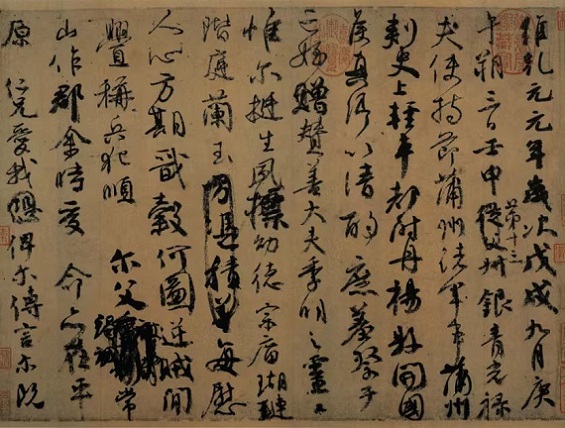 維乾元元年歲次戊戌九月庚
午朔三日壬申第十三從父叔銀青光祿
夫使持節蒲州諸軍事蒲州
刺史上輕車都尉丹楊縣開國
侯真卿以清酌庶羞祭于
亡姪贈贊善大夫季明之靈曰
惟爾挺生夙標幼德宗廟瑚璉
階庭蘭玉方憑積善每慰
人心方期戩穀何圖逆賊間
釁稱兵犯順 爾父竭誠常
山作郡余時受 命亦在平
原仁兄愛我恐俾爾傳言爾既